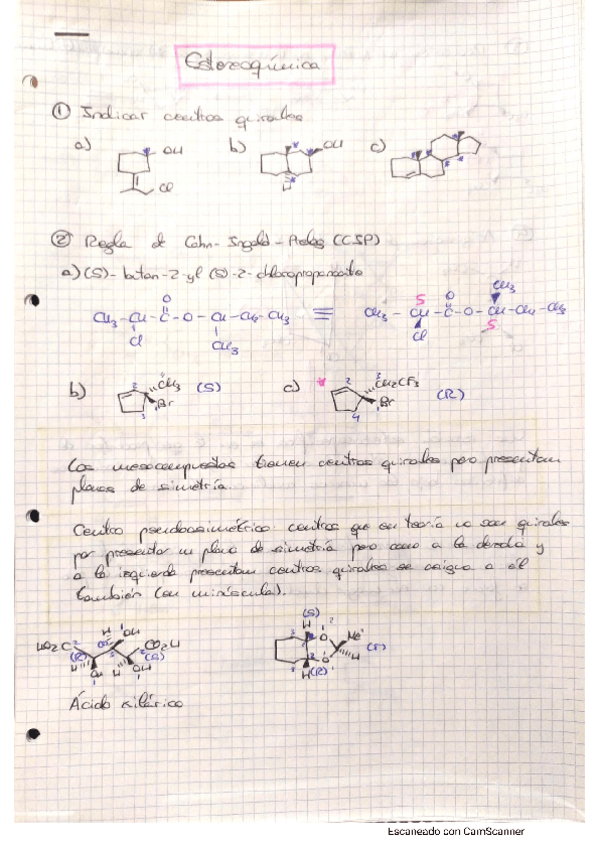 Estereoquímica
① Indicar centros quirales
a) OH b) OH c)
Cl
H
② Regla de Cahn-Ingold-Prelog (CIP)
a) (S)-butan-2-yl (S)-2-chloropropanoato
O
CH3-CH-C-O-CH-CH2-CH3
Cl CH3
≡
S O CH3
CH3-CH-C-O-CH-CH2-CH3
Cl S
b) CH3 (S) c) * CH2CF3
Br Br (R)
2 3 1 4
Los mesocompuestos tienen centros quirales pero presentan
planos de simetría.
Centro pseudoasimétrico: centros que en teoría no son quirales
por presentar un plano de simetría pero como a la derecha y
a la izquierda presentan centros quirales se asigna a él
también (en minúscula).
H OH
HO2C CO2H
(R) (S)
H OH H OH
(S)
H O Me
O H (r)
H (R)
Ácido xilárico
Escaneado con CamScanner